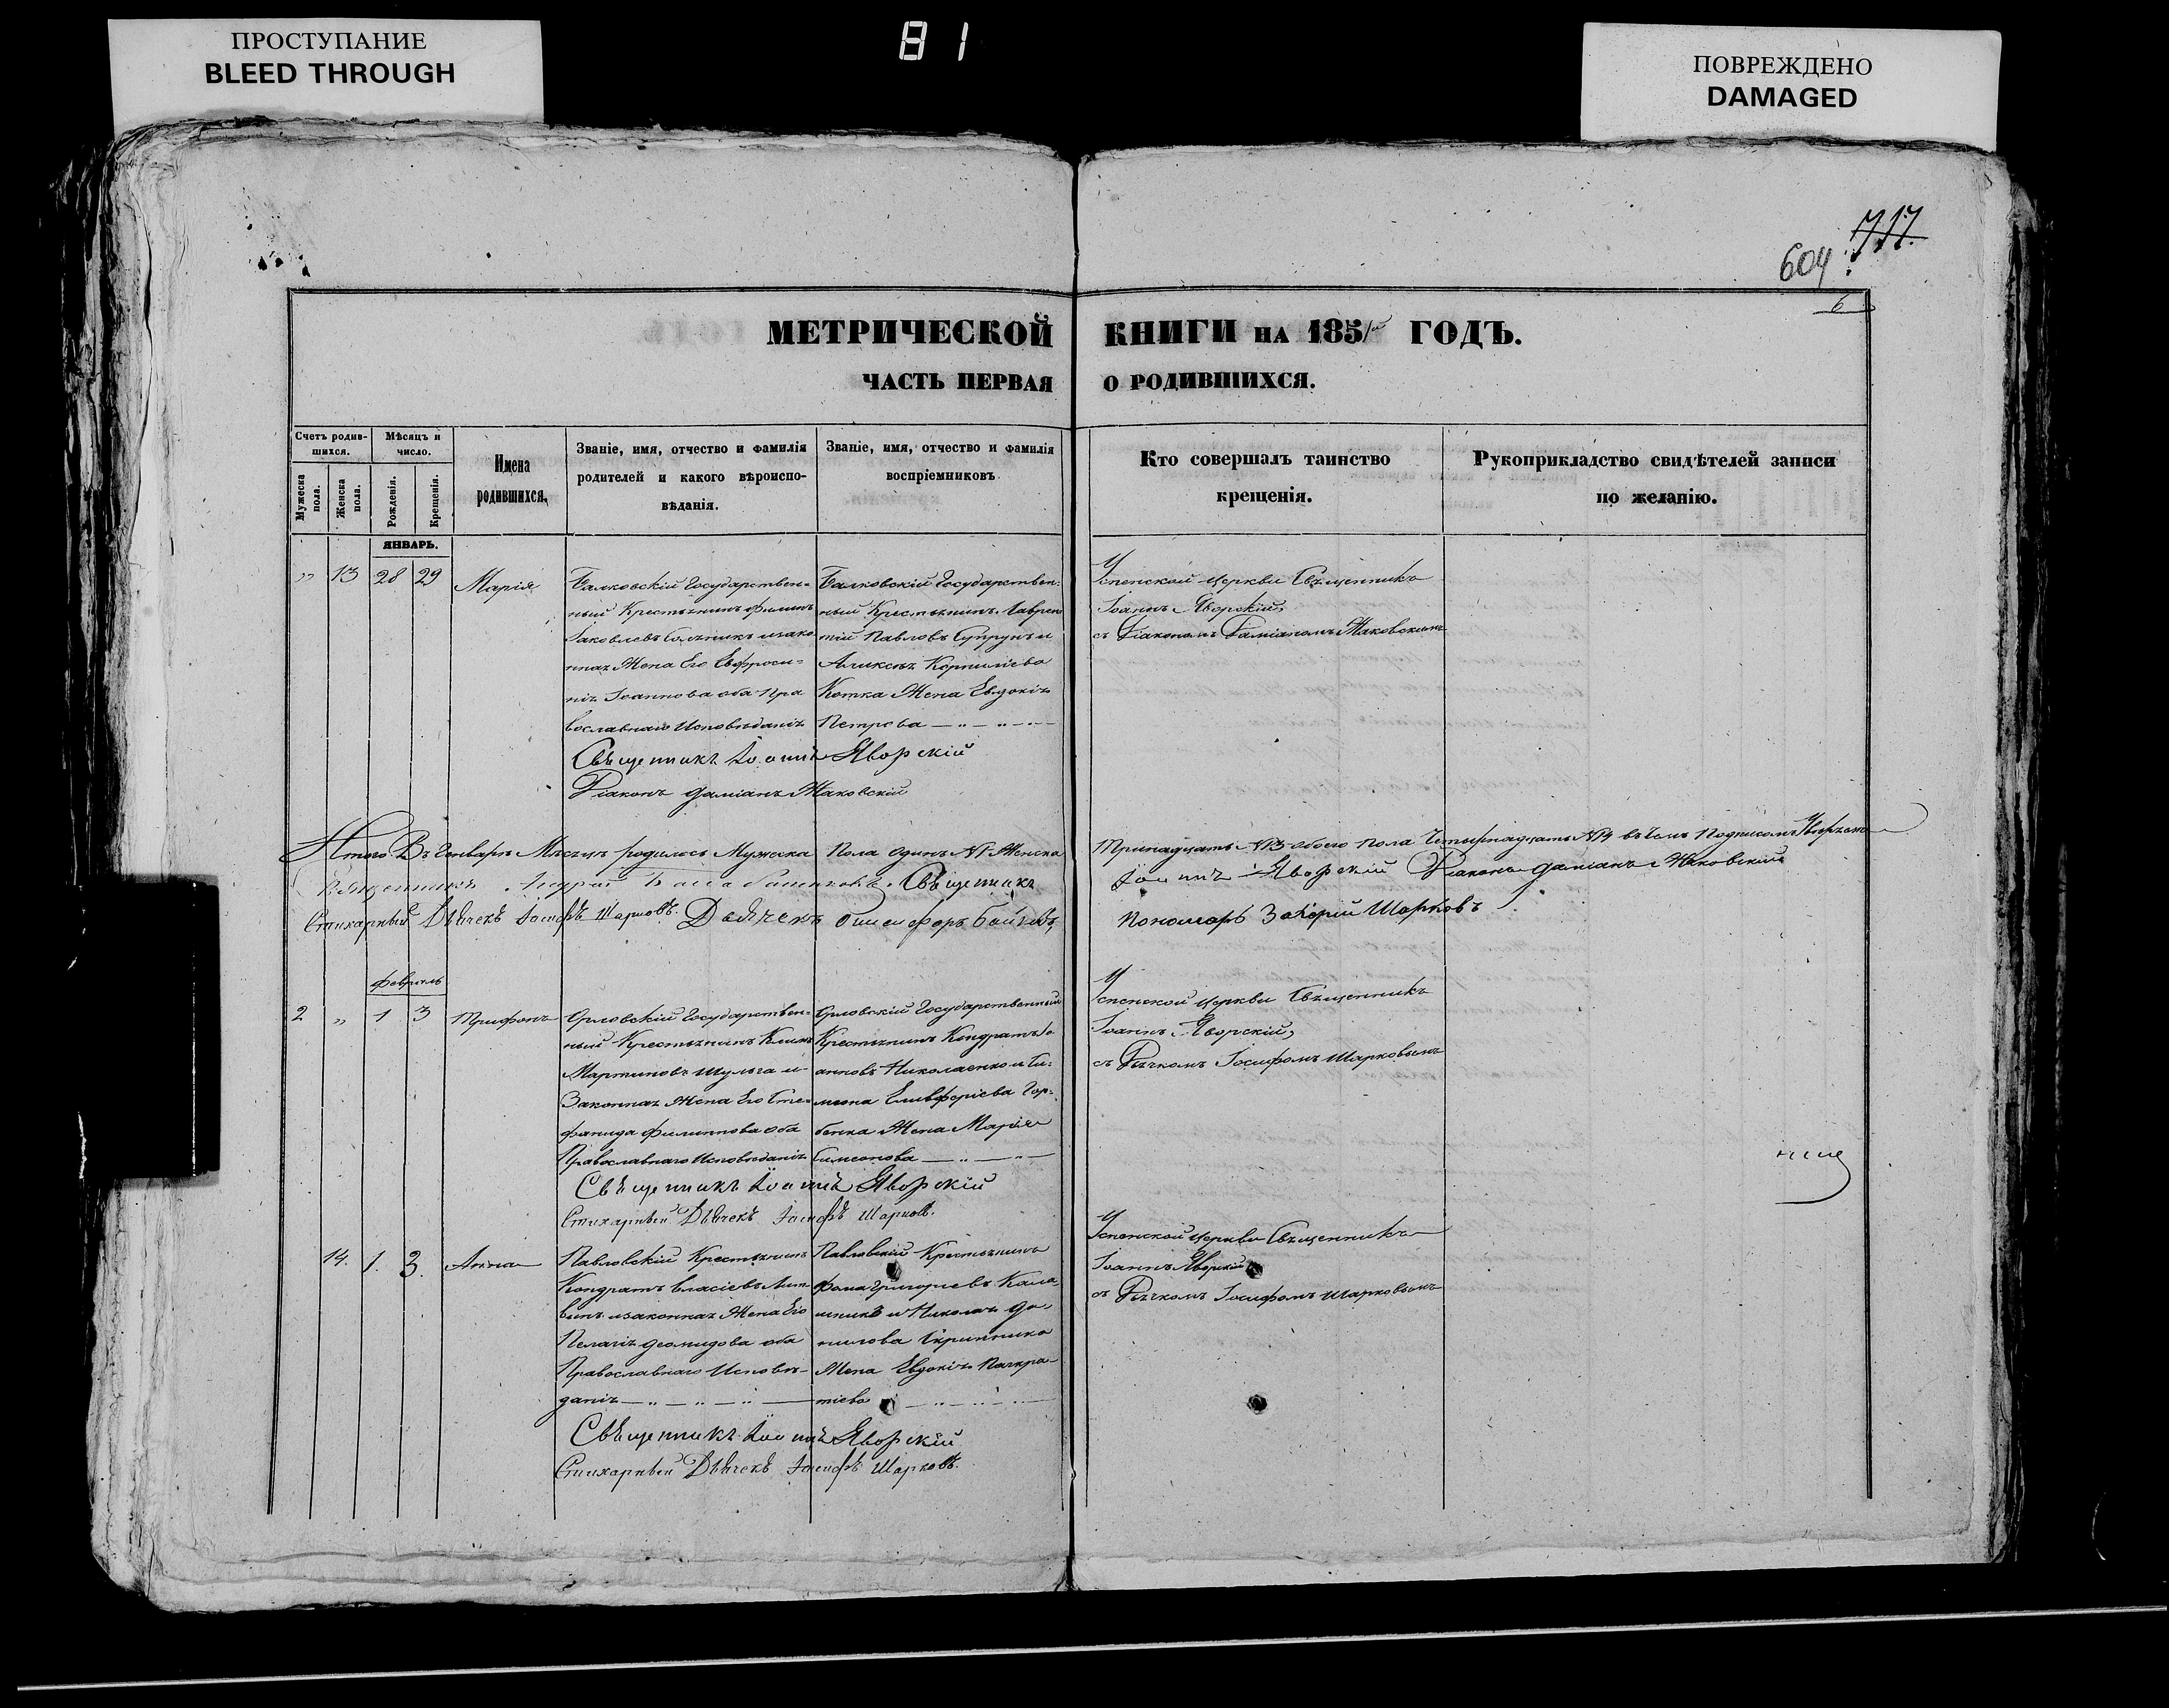 ПРОСТУПАНИЕ
BLEED THROUGH
81
ПОВРЕЖДЕНО
DAMAGED
717
604
6
МЕТРИЧЕСКОЙ КНИГИ НА 1851й ГОДЪ.
ЧАСТЬ ПЕРВАЯ О РОДИВШИХСЯ.
Счетъ родив-
шихся.
Мужеска пола.
Женска пола.
Мѣсяцъ и
число.
Рожденія.
Крещенія.
Имена
родившихся.
Званіе, имя, отчество и фамилія
родителей и какого вѣроиспо-
вѣданія.
Званіе, имя, отчество и фамилія
воспріемниковъ
Кто совершалъ таинство
крещенія.
Рукоприкладство свидѣтелей записи
по желанію.
ЯНВАРЬ.
" 13 28 29
Марія
Балковскій Государствен=
ный Крестьянинъ Филипъ
Іаковлевъ изако
нная Жена Его Евфроси=
нія Іоаннова оба Пра
вославнаго Исповѣданія
Балковскій Государствен:
ный Крестьянинъ Лаврен
тій Павловъ Супрунъ и
Алексѣя Корниліева
Котка Жена Евдокія
Петрова
Успенской церкви Священникъ
Іоаннъ Яворскій,
съ Діакономъ Даміаномъ Маковскимъ
Священникъ Іоаннъ Яворскій
Діаконъ Даміанъ Маковскій
Итого Въ Генварѣ Мѣсяцѣ родилось Мужеска Пола Одинъ №1 Женска
Тринадцать №13 обоего пола Четырнадцать №14 въ томъ Подписомъ Утверждаемъ
Священникъ Андрей Священникъ
Іоаннъ Яворскій Діаконъ Даміанъ Маковскій
Стихарный Дьячекъ Іосифъ Шарковъ. Дьячекъ Онисифоръ
Пономарь Захарій Шарковъ
Февраль
2 " 1 3
Трифонъ
Орловскій Государствен=
ный Крестьянинъ Климъ
Мартиновъ Шульга и
Законная Жена Его Сте=
фанида Филиппова оба
Православнаго Исповѣданія
Орловскій Государственный
Крестьянинъ Кондратъ Іо
анновъ Николаенко и Си=
меона Елевферіева Гор=
бенка Жена Марія
Симеонова
Успенской церкви Священникъ
Іоаннъ Яворскій,
съ Дьячкомъ Іосифомъ Шарковымъ
Священникъ Іоаннъ Яворскій
Стихарный Дьячекъ Іосифъ Шарковъ.
14. 1. 3.
Анна
Павловскій Крестьянинъ
Кондратъ Власіевъ Лит=
винъ изаконная Жена Его
Пелагія Деомидова оба
Православнаго Исповѣ=
данія
Павловскій Крестьянинъ
Фома Григоріевъ Кала=
шникъ и Николая Да=
нилова Скринника
Жена Евдокія Панкра=
тіева
Успенской церкви Священникъ
Іоаннъ Яворскій
съ Дьячкомъ Іосифомъ Шарковымъ
Священникъ Іоаннъ Яворскій
Стихарный Дьячекъ Іосифъ Шарковъ.